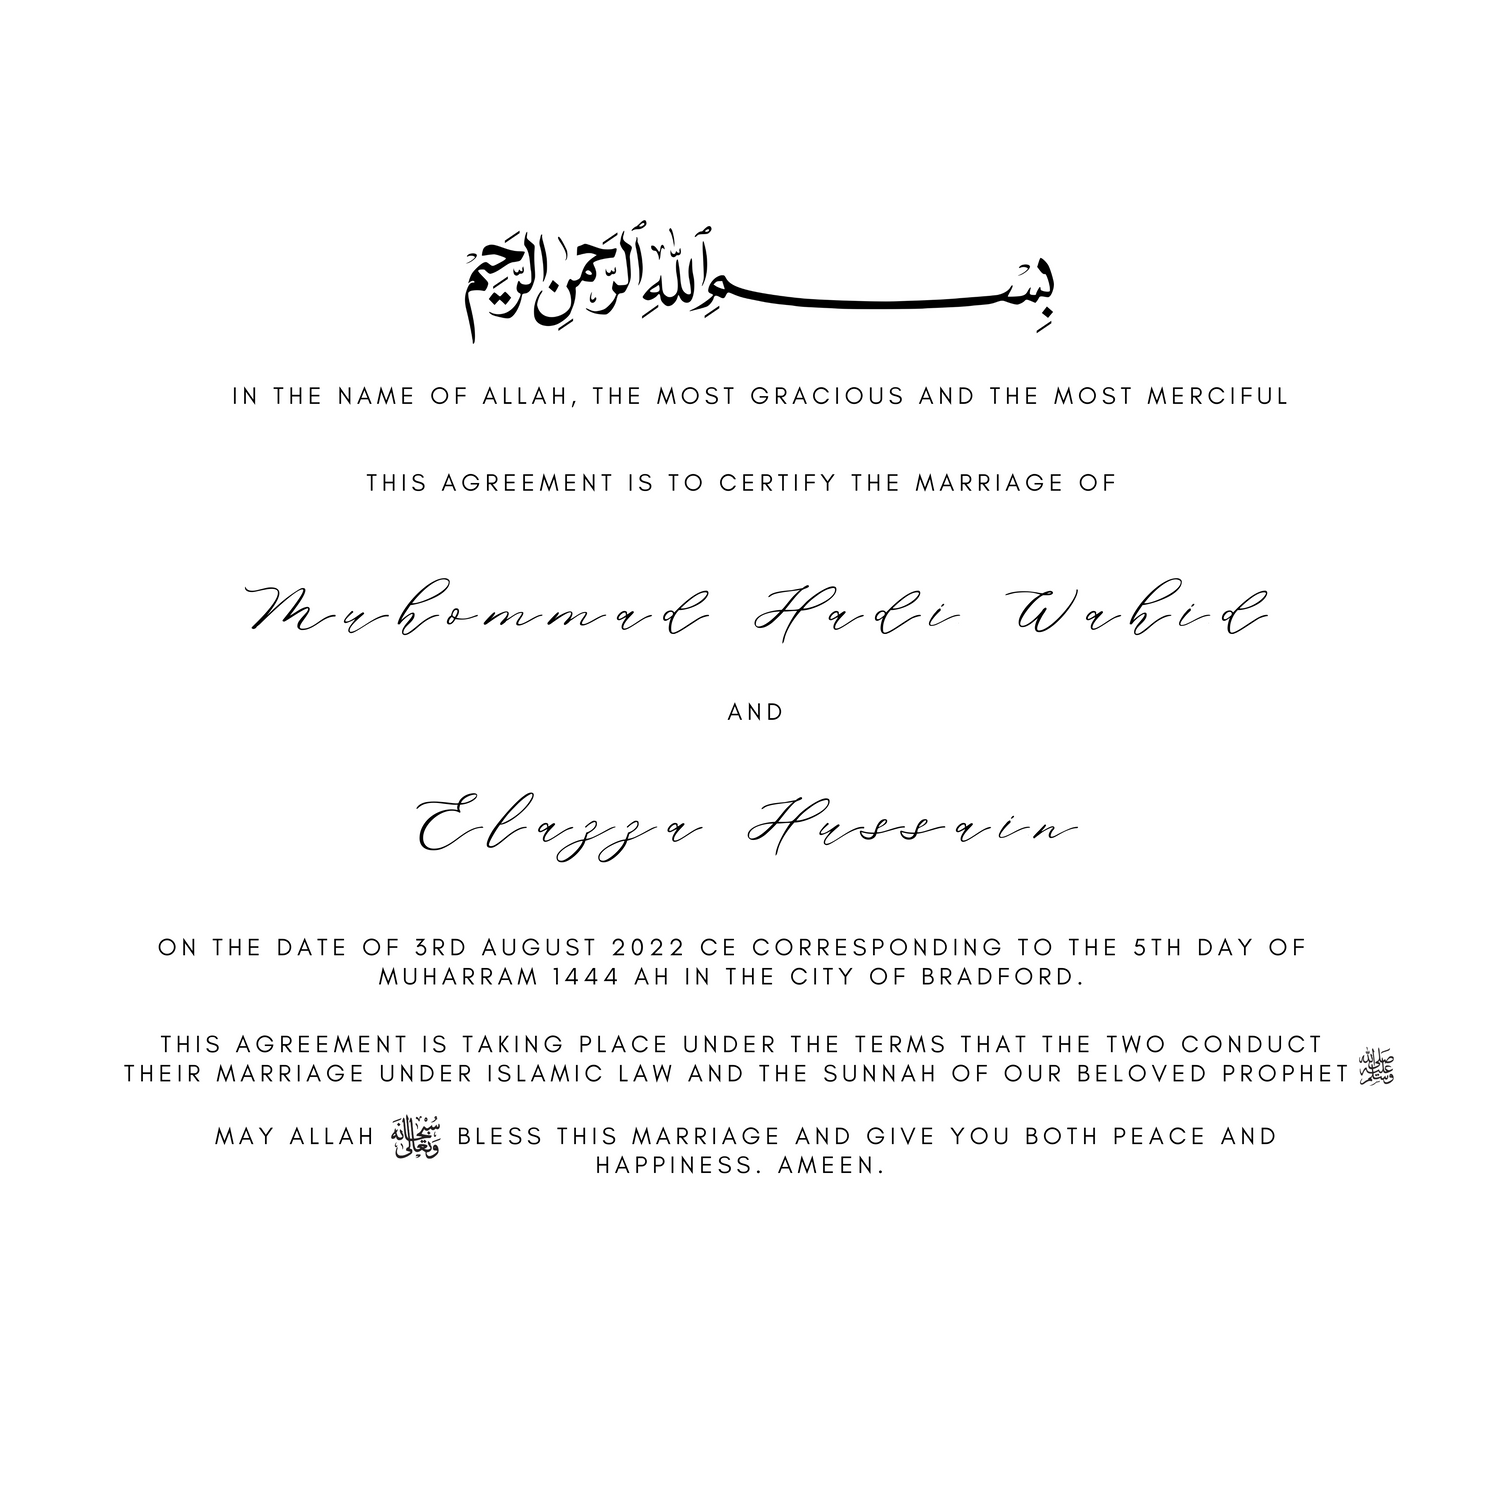 بِسْمِ ٱللَّهِ ٱلرَّحْمَٰنِ ٱلرَّحِيمِ
IN THE NAME OF ALLAH, THE MOST GRACIOUS AND THE MOST MERCIFUL
THIS AGREEMENT IS TO CERTIFY THE MARRIAGE OF
Muhommad Hadi Wahid
AND
Elazza Hussain
ON THE DATE OF 3RD AUGUST 2022 CE CORRESPONDING TO THE 5TH DAY OF
MUHARRAM 1444 AH IN THE CITY OF BRADFORD.
THIS AGREEMENT IS TAKING PLACE UNDER THE TERMS THAT THE TWO CONDUCT
THEIR MARRIAGE UNDER ISLAMIC LAW AND THE SUNNAH OF OUR BELOVED PROPHET ﷺ
MAY ALLAH سُبْحَانَهُ وَتَعَالَىٰ BLESS THIS MARRIAGE AND GIVE YOU BOTH PEACE AND
HAPPINESS. AMEEN.